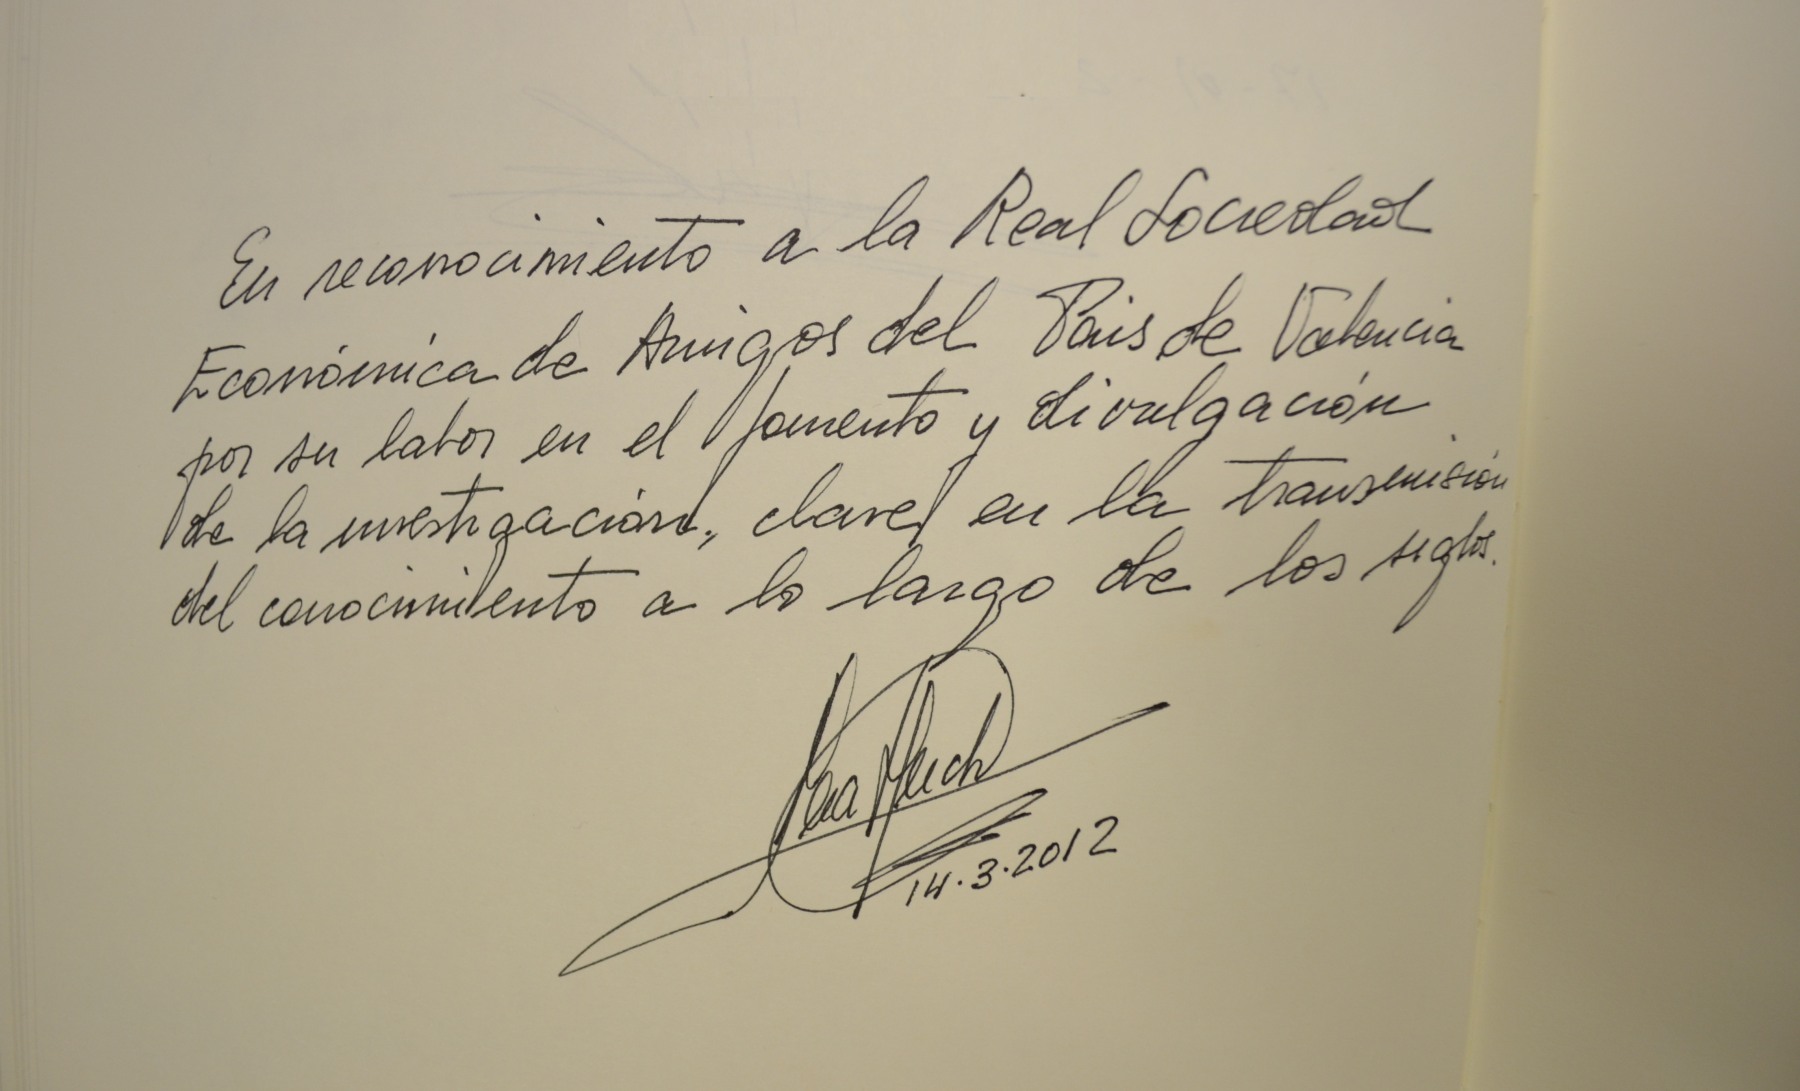 En reconocimiento a la Real Sociedad
Económica de Amigos del Pais de Valencia
por su labor en el fomento y divulgación
de la investigación, clave en la transmisión
del conocimiento a lo largo de los siglos.
14.3.2012